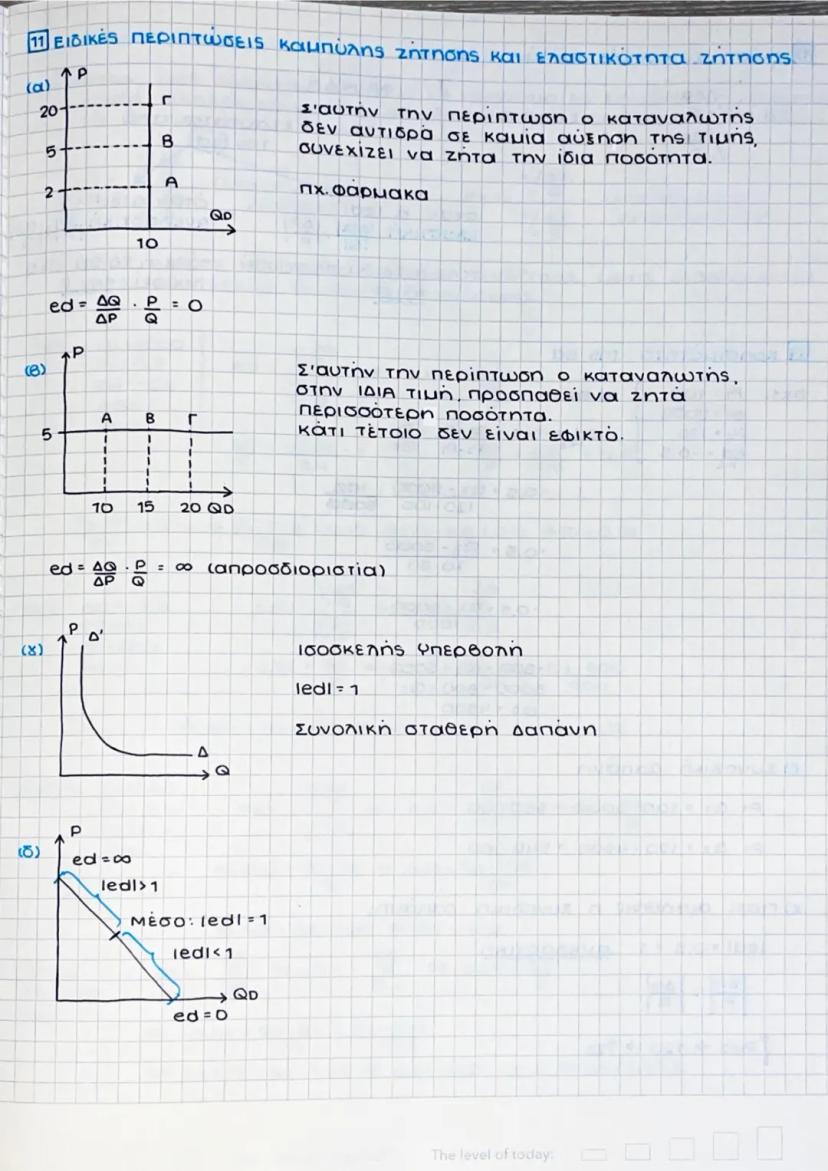 11 ΕΙΔΙΚΕΣ ΠΕΡΙΠΤΩΣΕΙΣ ΚΑΜΠΥΛΗΣ ΖΗΤΗΣΗΣ ΚΑΙ ΕΛΑΣΤΙΚΟΤΗΤΑ ΖΗΤΗΣΗΣ
(α) P
20 Γ
5 B
2 A
QD
10
Σ'αυτήν την περίπτωση ο καταναλωτής
δεν αντιδρά σε καμία αύξηση της τιμής,
συνεχίζει να ζητά την ίδια ποσότητα.
πχ. φάρμακα
ed = ΔQ/ΔP · P/Q = 0
(β) P
A B Γ
5
10 15 20 QD
Σ'αυτήν την περίπτωση ο καταναλωτής,
στην ΙΔΙΑ τιμή, προσπαθεί να ζητά
περισσότερη ποσότητα.
Κάτι τέτοιο δεν είναι εφικτό.
ed = ΔQ/ΔP · P/Q = ∞ (απροσδιοριστία)
(γ) P Δ'
Δ
Q
Ισοσκελής Υπερβολή
|ed| = 1
Συνολική σταθερή Δαπάνη
(δ) P
ed = ∞
|ed| > 1
Μέσο: |ed| = 1
|ed| < 1
QD
ed = 0
The level of today: